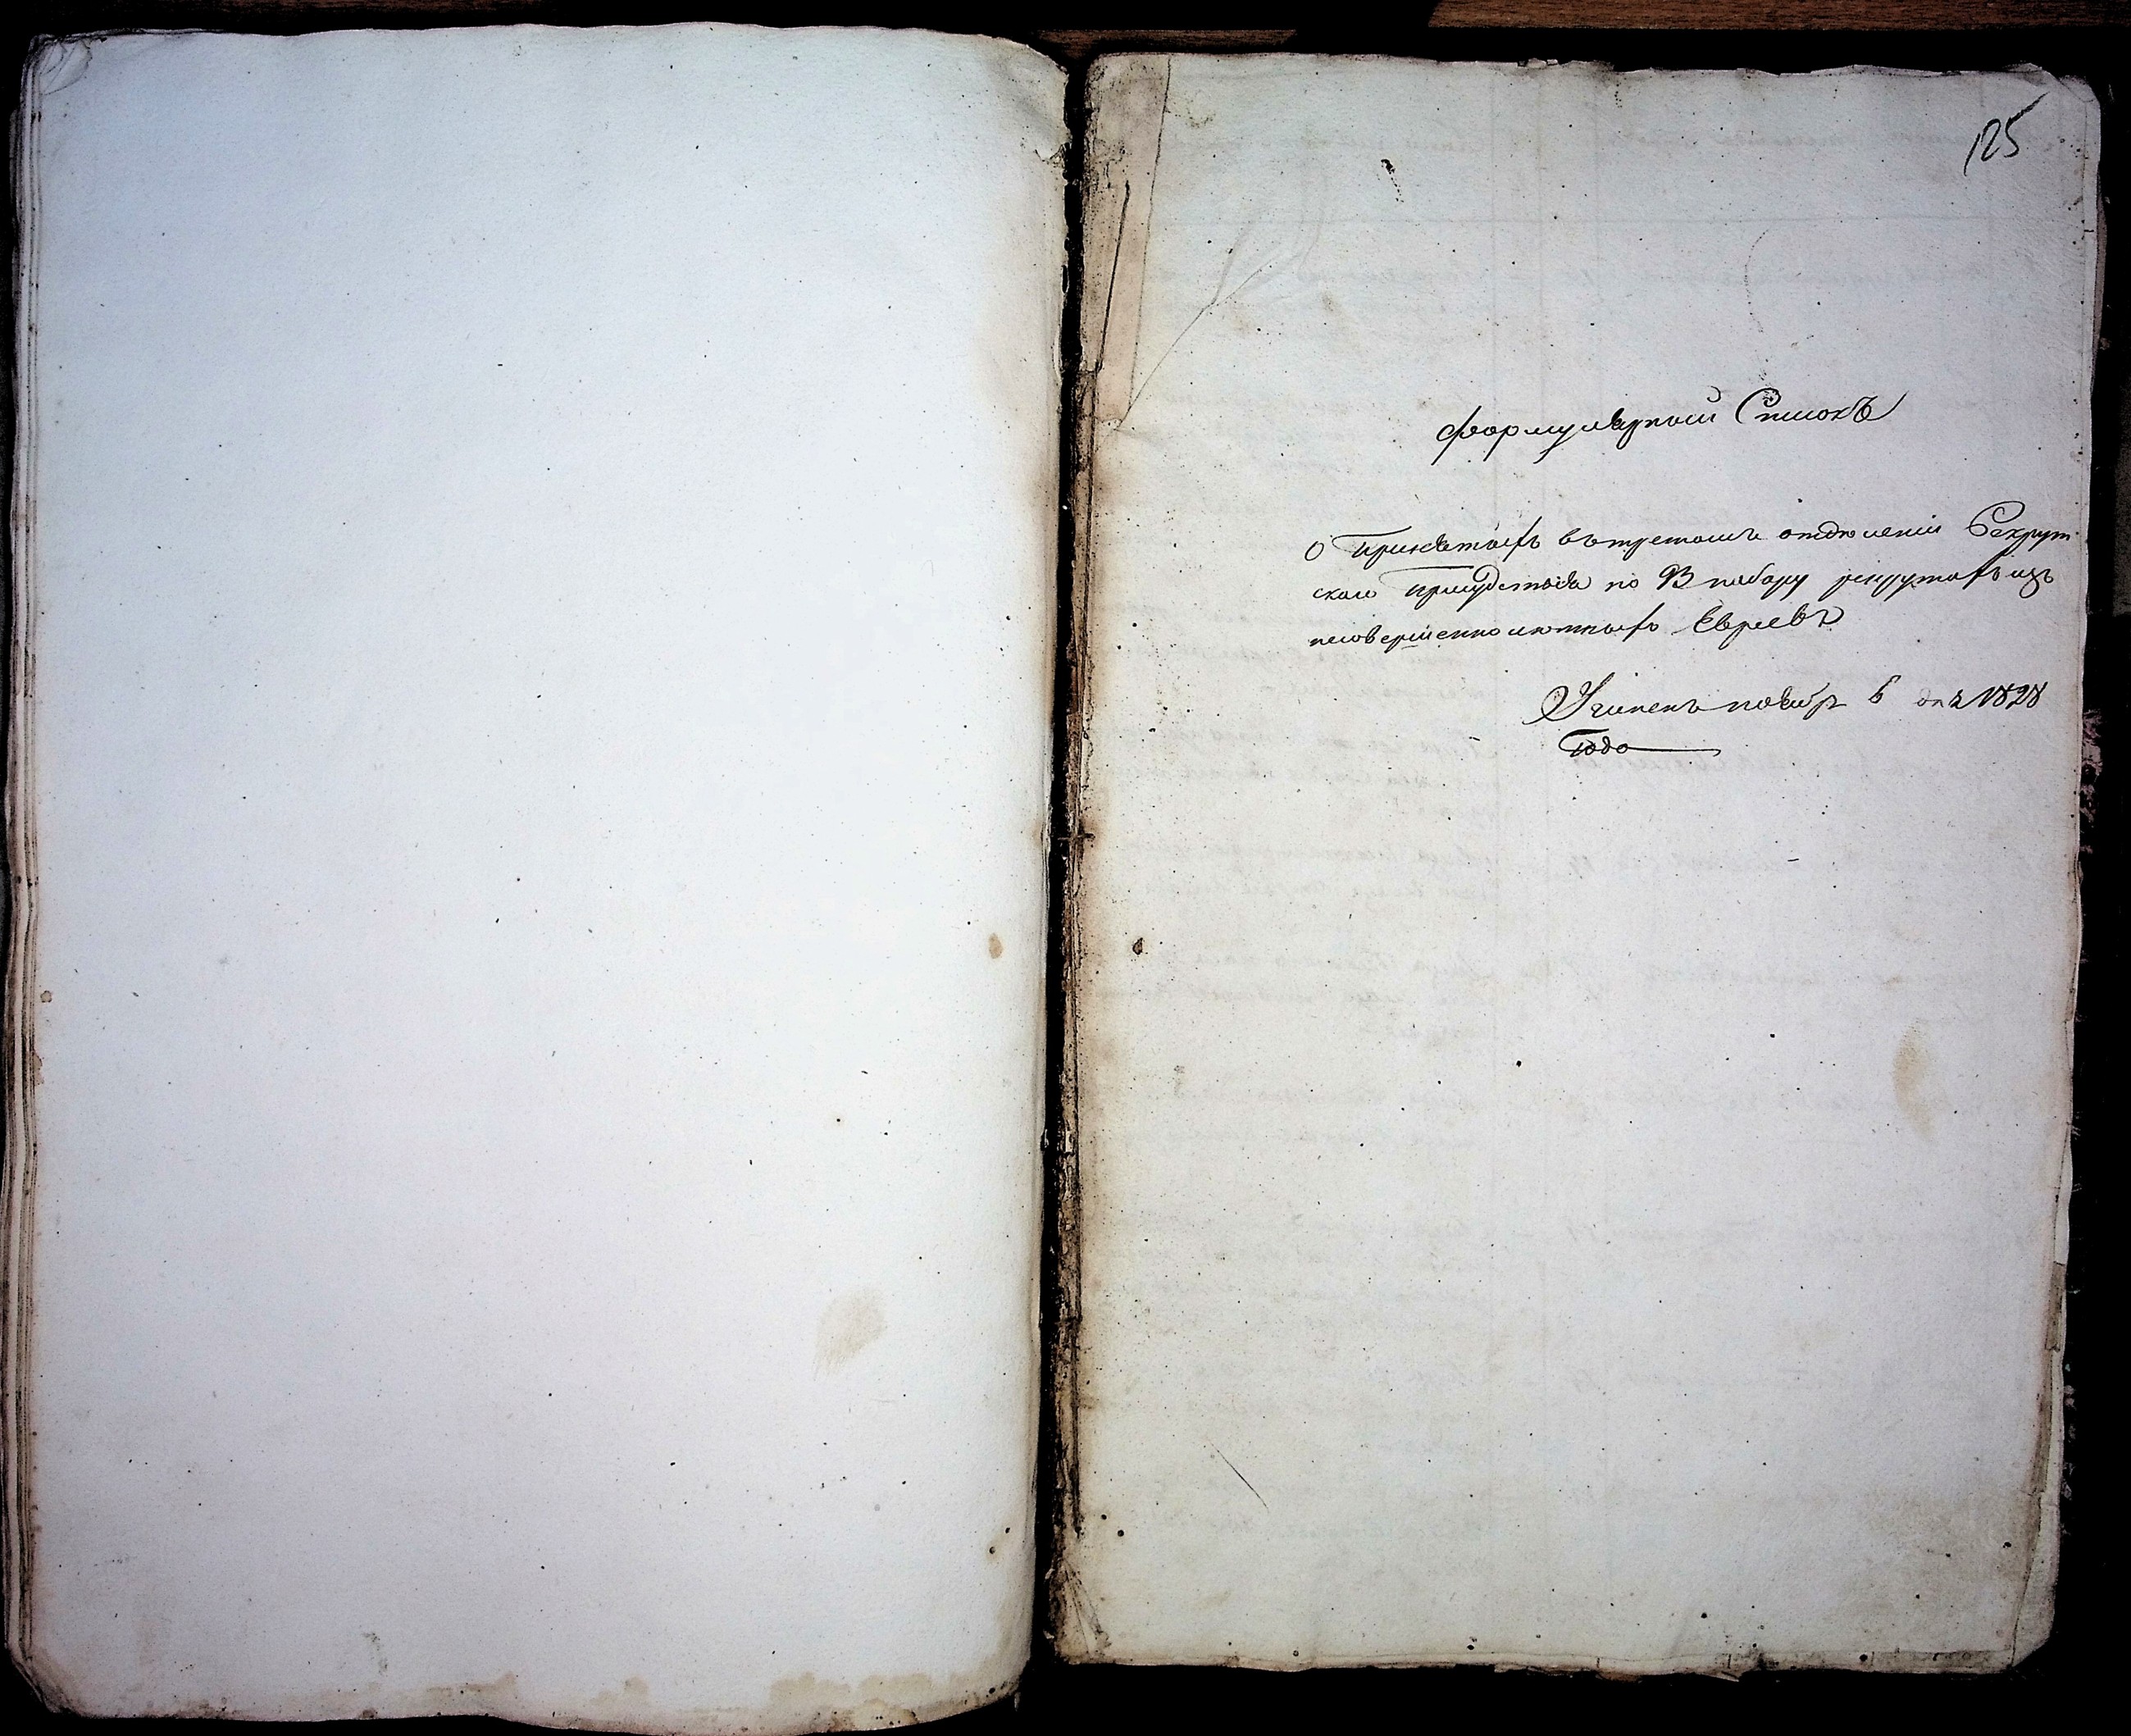 125
Формулярный Списокъ
О Принятыхъ вътретьемъ отделении Рекрут
скаго Присудствия по 93 набору рекрутахъ изъ
несовершеннолютныхъ Евреевъ
Учиненъ ноября 6 дня 1828
Года